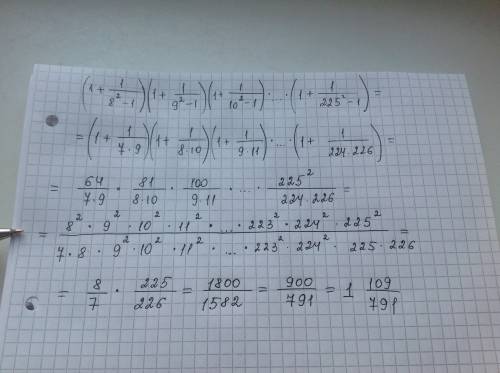 (1 + 1/(8² − 1))(1 + 1/(9² − 1))(1 + 1/(10² − 1)) · ... · (1 + 1/(225² − 1)) =
= (1 + 1/(7·9))(1 + 1/(8·10))(1 + 1/(9·11)) · ... · (1 + 1/(224·226)) =
= 64/(7·9) · 81/(8·10) · 100/(9·11) · ... · 225²/(224·226) =
= (8² · 9² · 10² · 11² · ... · 223² · 224² · 225²)/(7 · 8 · 9² · 10² · 11² · ... · 223² · 224² · 225 · 226) =
= 8/7 · 225/226 = 1800/1582 = 900/791 = 1 109/791